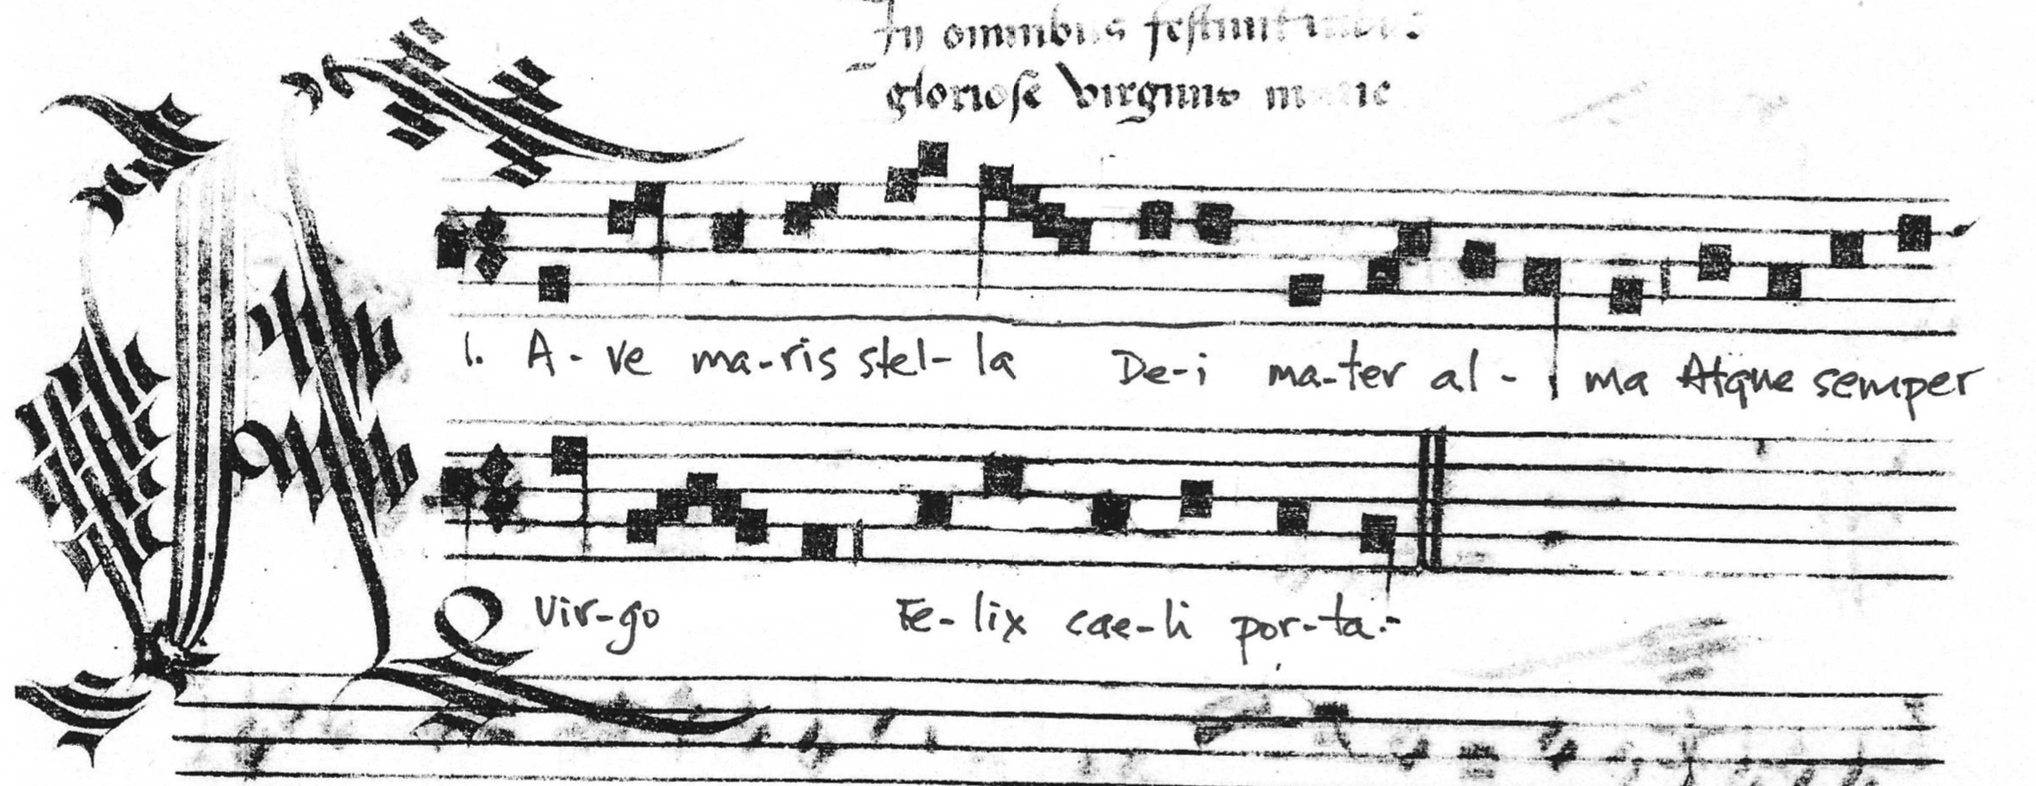 In omnibus festiuitatibus
gloriose virginis marie
1. A-ve ma-ris stel-la De-i ma-ter al-ma Atque semper
Vir-go Fe-lix cae-li por-ta.-